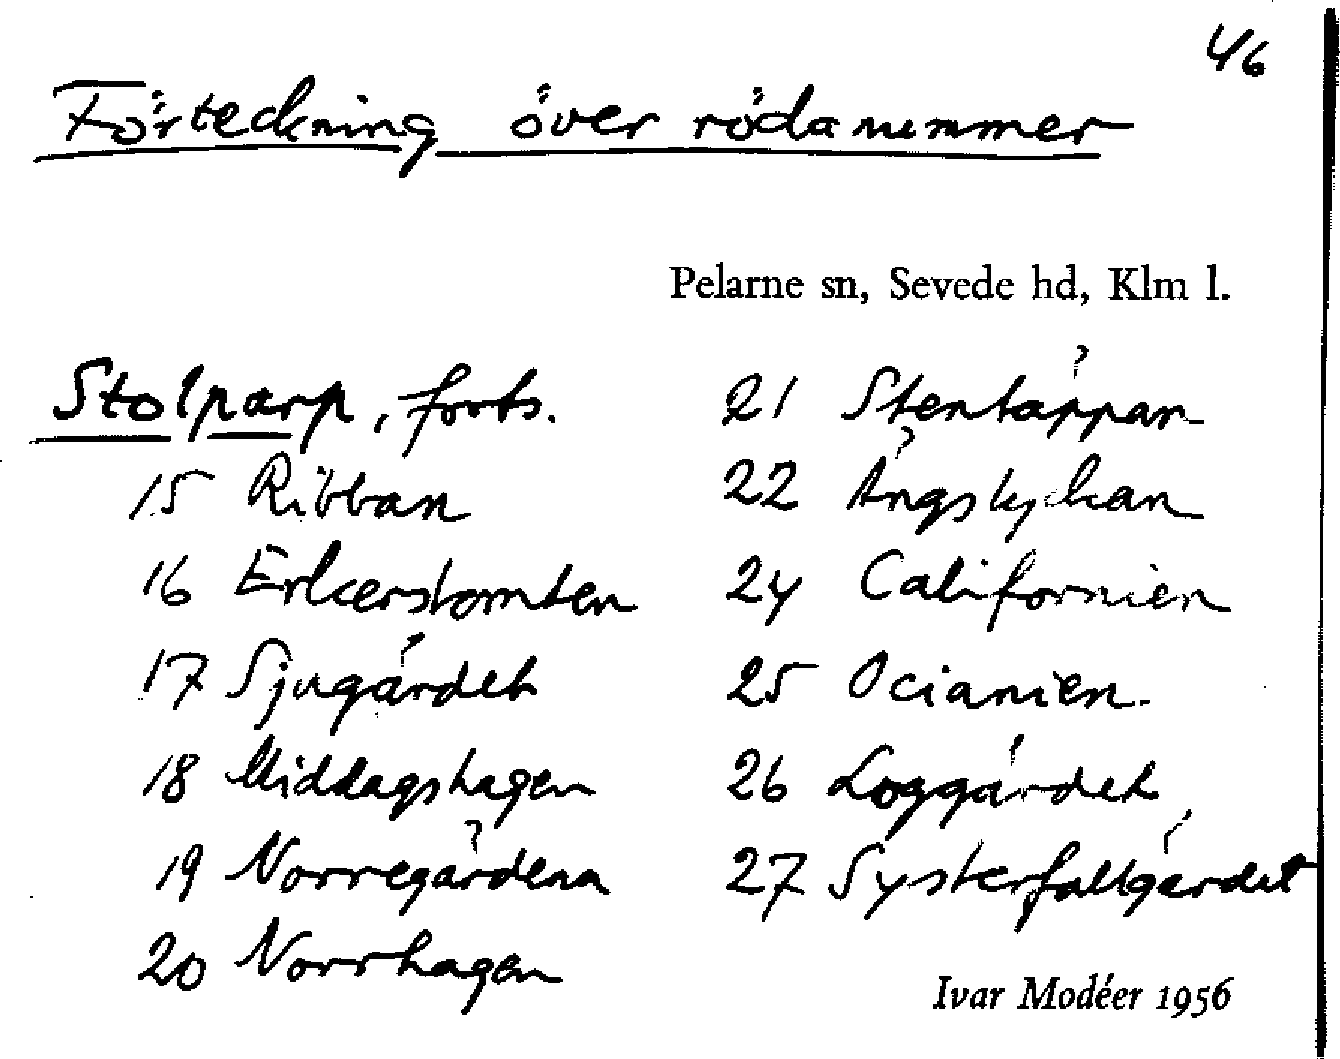 4/6
Förteckning över röda nummer
Pelarne sn, Sevede hd, Klm l.
Stolparp, forts.
15 Ribban
16 Erkerstomten
17 Sjugärdet
18 Middagshagen
19 Norregärdena
20 Norrhagen
21 Stentäppan
22 Ängslyckan
24 Californien
25 Ocianien.
26 Loggärdet
27 Systerfallgärdet
Ivar Modéer 1956